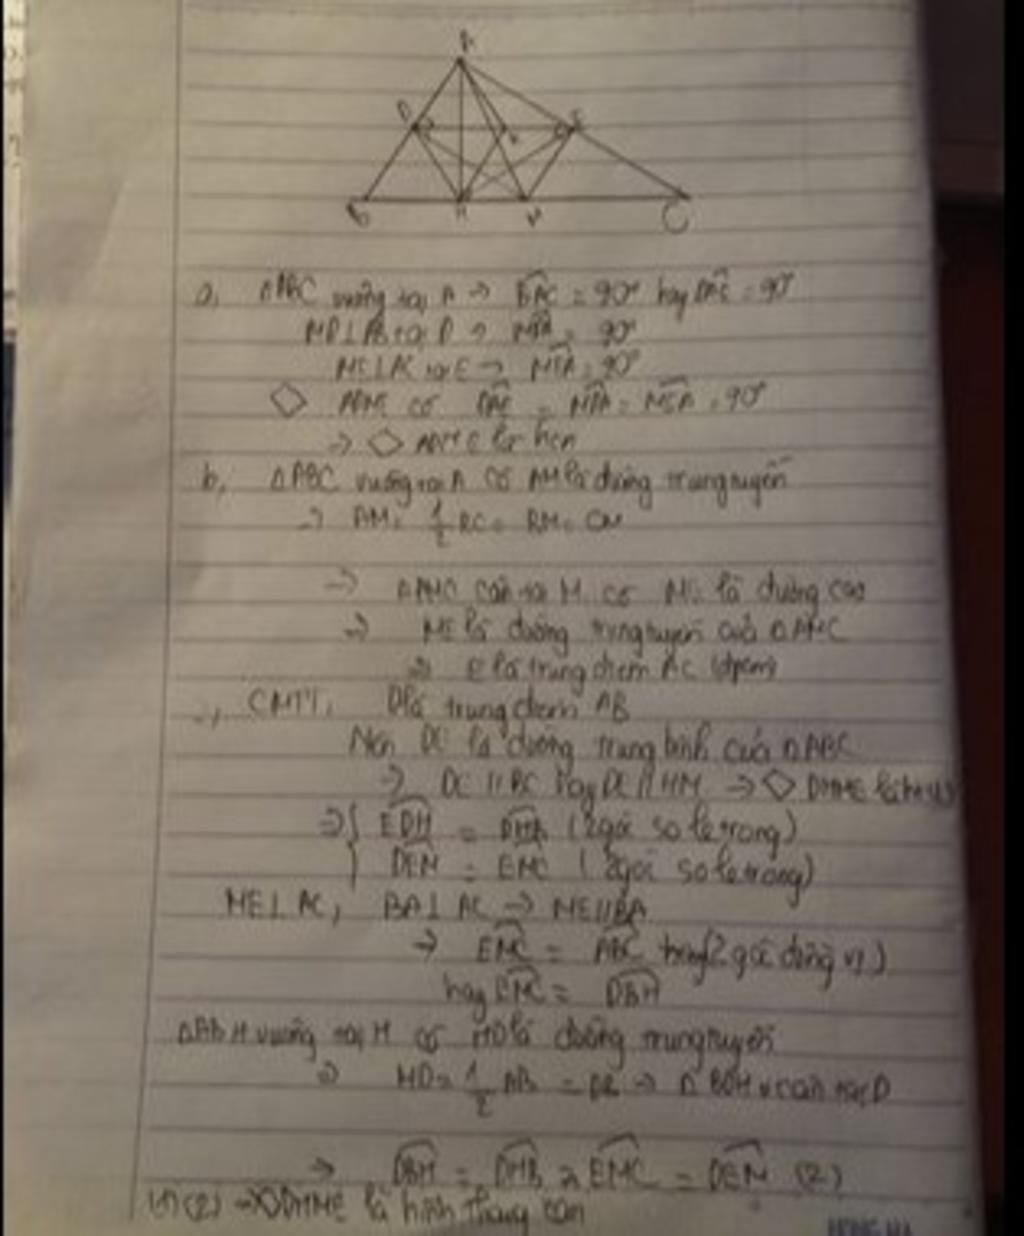 A
D
E
K
B
H
M
C
a, ΔABC vuông tại A → BAC = 90° hay DAE = 90°
MD⊥AB tại D → MDA = 90°
ME⊥AC tại E → MEA = 90°
◇ ADME có DAE = MDA = MEA = 90°
→ ◇ ADME là hcn
b, ΔABC vuông tại A có AM là đường trung tuyến
→ AM = 1/2 BC = BM = CM
→ ΔAMC cân tại M có ME là đường cao
→ ME là đường trung tuyến của ΔAMC
→ E là trung điểm AC (đpcm)
CMTT, D là trung điểm AB
Nên DE là đường trung bình của ΔABC
→ DE // BC hay DE // HM → ◇ DHME là
⇒ { EDH = DHB (2 góc so le trong)
DEM = EMC (2 góc so le trong)
ME⊥AC, BA⊥AC → ME//BA
→ EMC = ABC (2 góc đồng vị)
hay EMC = DBH
ΔABH vuông tại H có HD là đường trung tuyến
⇒ HD = 1/2 AB = DB → ΔBDH cân tại D
→ DBH = DHB → EMC = DEM (2)
(1)(2) → ◇DHME là hình thang cân